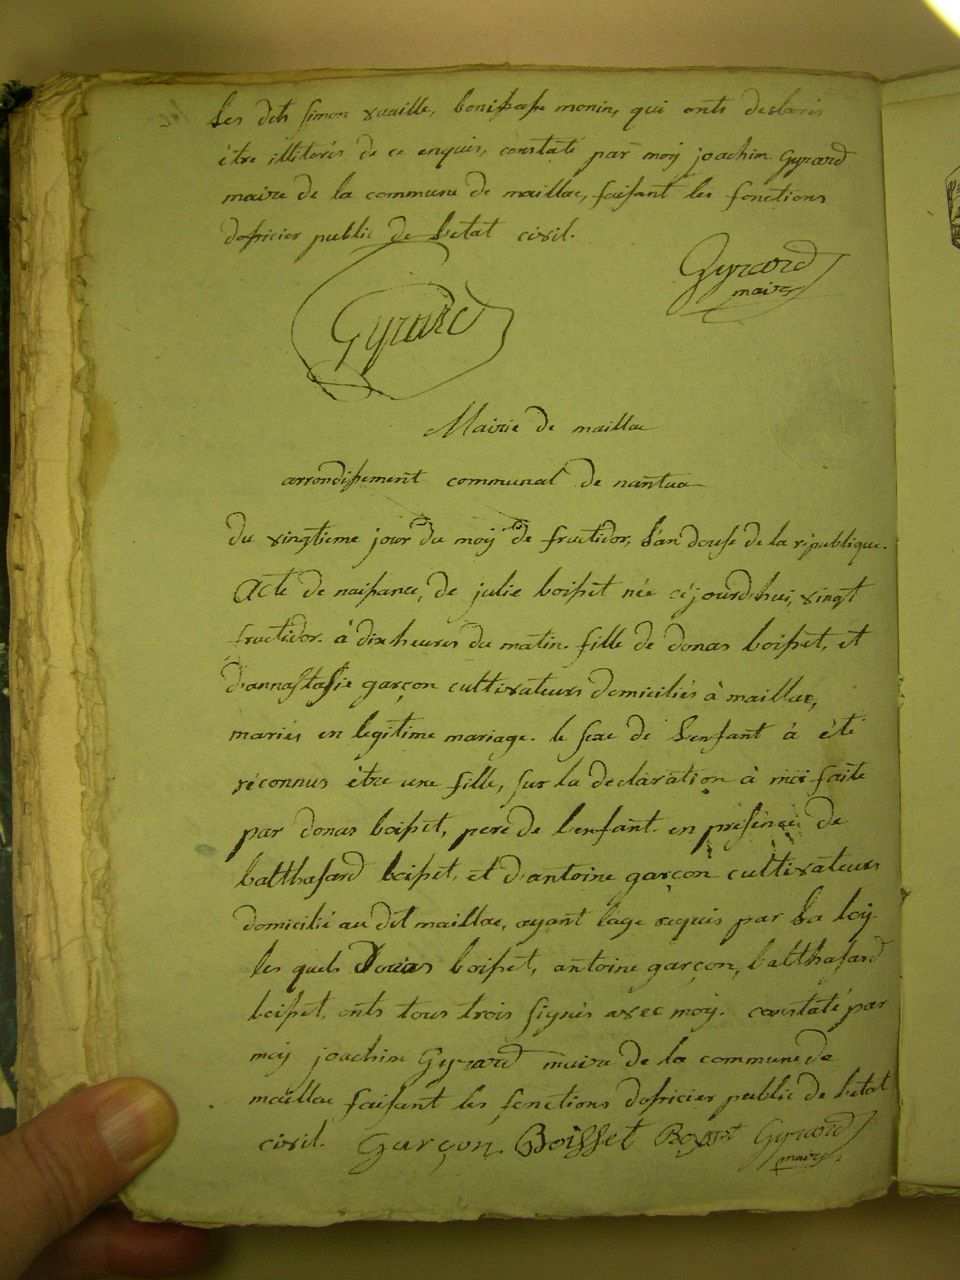 les dits simon vuaille, bonifasse monin, qui onts desclarés
être illiterés de ce enquis, constaté par moÿ joachim Gyrard
maire de la commune de maillac, faisant les fonctions
d'officier public de l'etat civil.
Gyrard
maire
Gyrard
Mairie de maillac
arrondissement communal de nantua
du vingtieme jour du moÿ de fructidor, l'an douse de la république.
Acte de naissance, de julie boisset née cejourd'hui, vingt
fructidor à dix heures du matin. fille de donas boisset, et
d'annastasie garçon cultivateurs domiciliés à maillac,
mariés en légitime mariage. le sexe de l'enfant à été
réconnus être une fille, sur la declaration à moi faite
par donas boisset, pere de l'enfant. en présence de
balthasard boisset, et d'antoine garçon cultivateurs
domicilié au dit maillac, ayant l'age requis par la loÿ
les quels Donas boisset, antoine garçon, balthasard
boisset, onts tous trois signés avec moÿ. constaté par
moÿ joachim Gyrard maire de la commune de
maillac faisant les fonctions d'officier public de l'etat
civil. Garçon Boisset Gyrard
maire